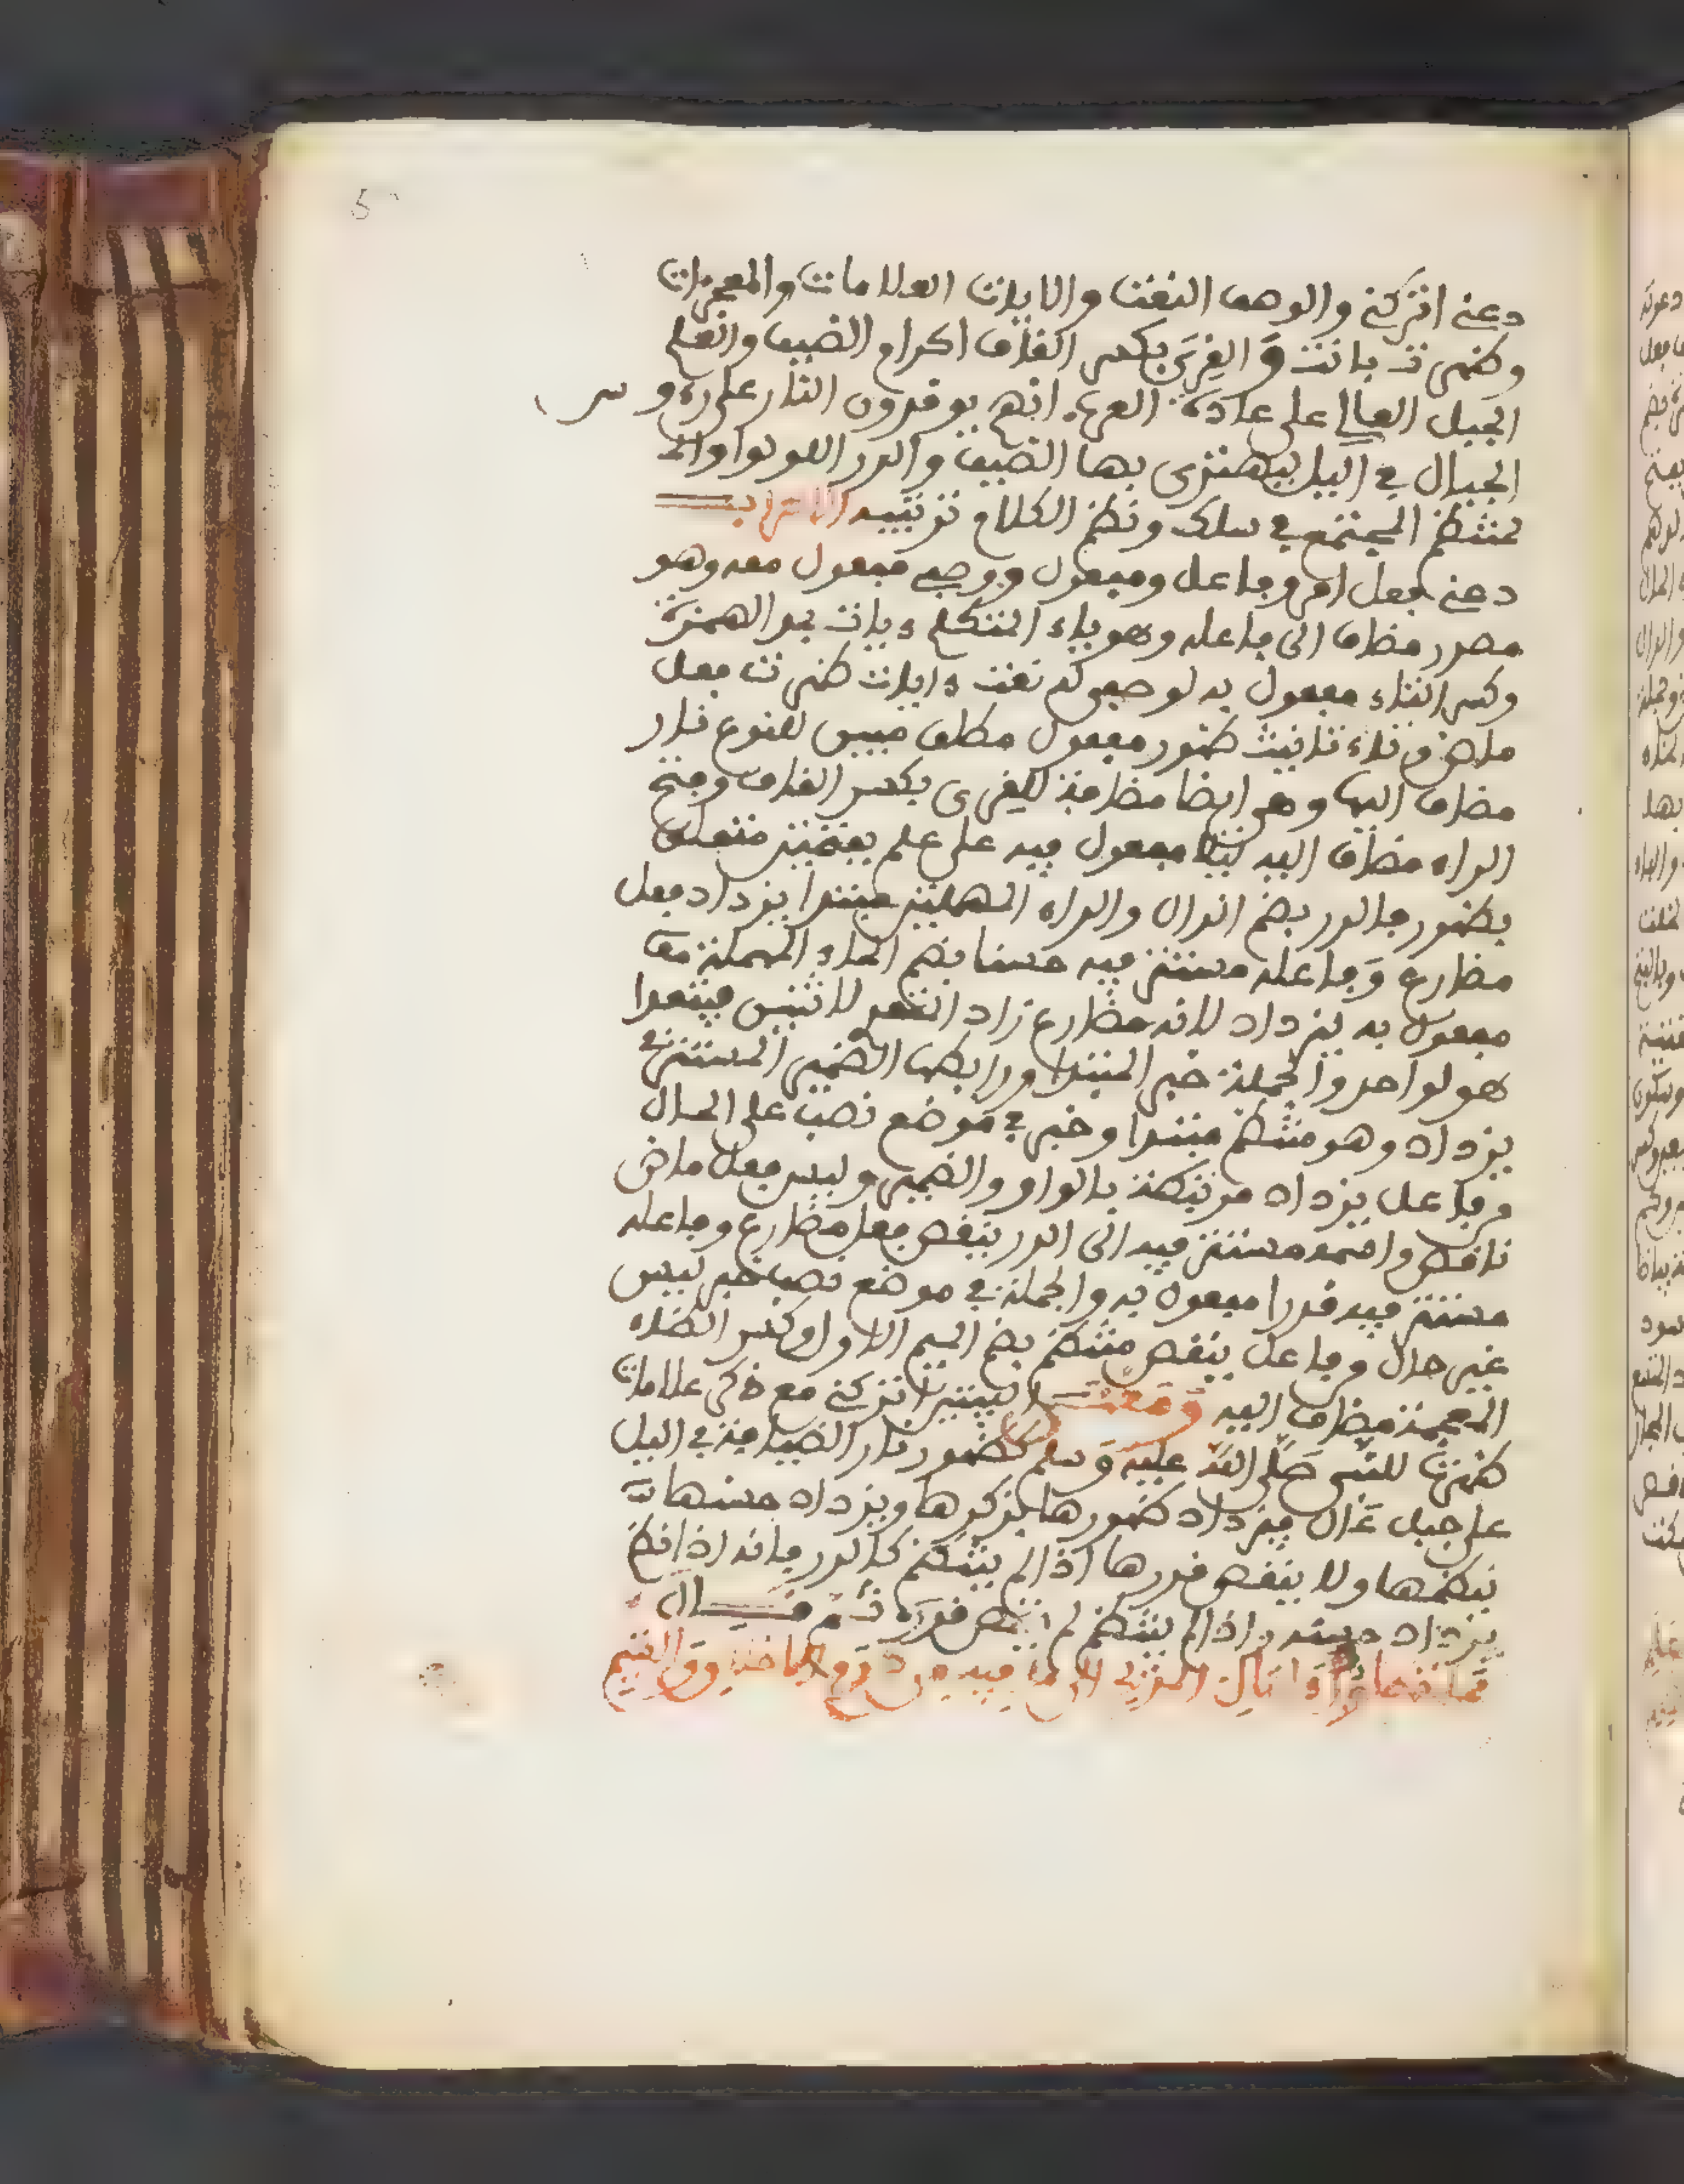 دعنے اتركنے والوصف النعت والايات العلامات والمعجزات
وظهرت بانت والقرى بكسر القاف اكرام الضيف والعلم
الجبل العالي على عادة العرب انهم يوقدون النار على رءوس
الجبال في اليل ليهتدى بها الضيف والدر اللولوا والمـ
ـنتظم المجتمع في سلك ونظم الكلام ترتيبه الاعراب
دعنے فعل امر وفاعل ومفعول ووصفے مفعول معه وهو
مصدر مضاف الى فاعله وهو ياء المتكلم ءايات بمد الهمزة
وكسر التاء مفعول به لوصفى له نعت ءايات ظهرت فعل
ماض وتاء تانيث ظهور مفعول مطلق مبين للنوع نار
مضاف اليها وهى ايضا مضافة للقرى بكسر القاف وفتح
الراء مضاف اليه ليلا مفعول فيه على علم بفتحتين متعلق
بظهور فالدر بضم الدال والراء المهملتين مبتدا يزداد فعل
مضارع وفاعله مستتر فيه حسنا بضم الحاء المهملة
مفعول به يزداد لانه مضارع زاد المتعد لاثنين فيتعدا
هو لواحد والجملة خبر المبتدا ورابطها الضمير المستتر في
يزداد وهو منتظم مبتدا وخبر في موضع نصب على الحال
من فاعل يزداد مرتبطة بالواو والضمير وليس فعل ماض
ناقص واسمه مستتر فيه الى الدر ينقص فعل مضارع وفاعله
مستتر فيه قدرا مفعول به والجملة في موضع نصب خبر ليس
غير حال وفاعل ينقص منتظم بضم الميم الاولى وكسر الظاء
المعجمة مضاف اليه ومعنـــى البيتين اتركنے مع ذكر علامات
ظهرت للنبى صلى الله عليه وسلم كظهور نار الضيافة في اليل
على جبل عال فيزداد ظهورها بذكرها ويزداد حسنها
بنظمها ولا ينقص قدرها اذا لم ينتظم كالدر فانه اذا نظم
يزداد حسنه واذا لم ينتظم لم ينقص قدره ثم قـــال
فما تطاول ءامال المديح الى ما فيه من كرم الاخلاق والشيم